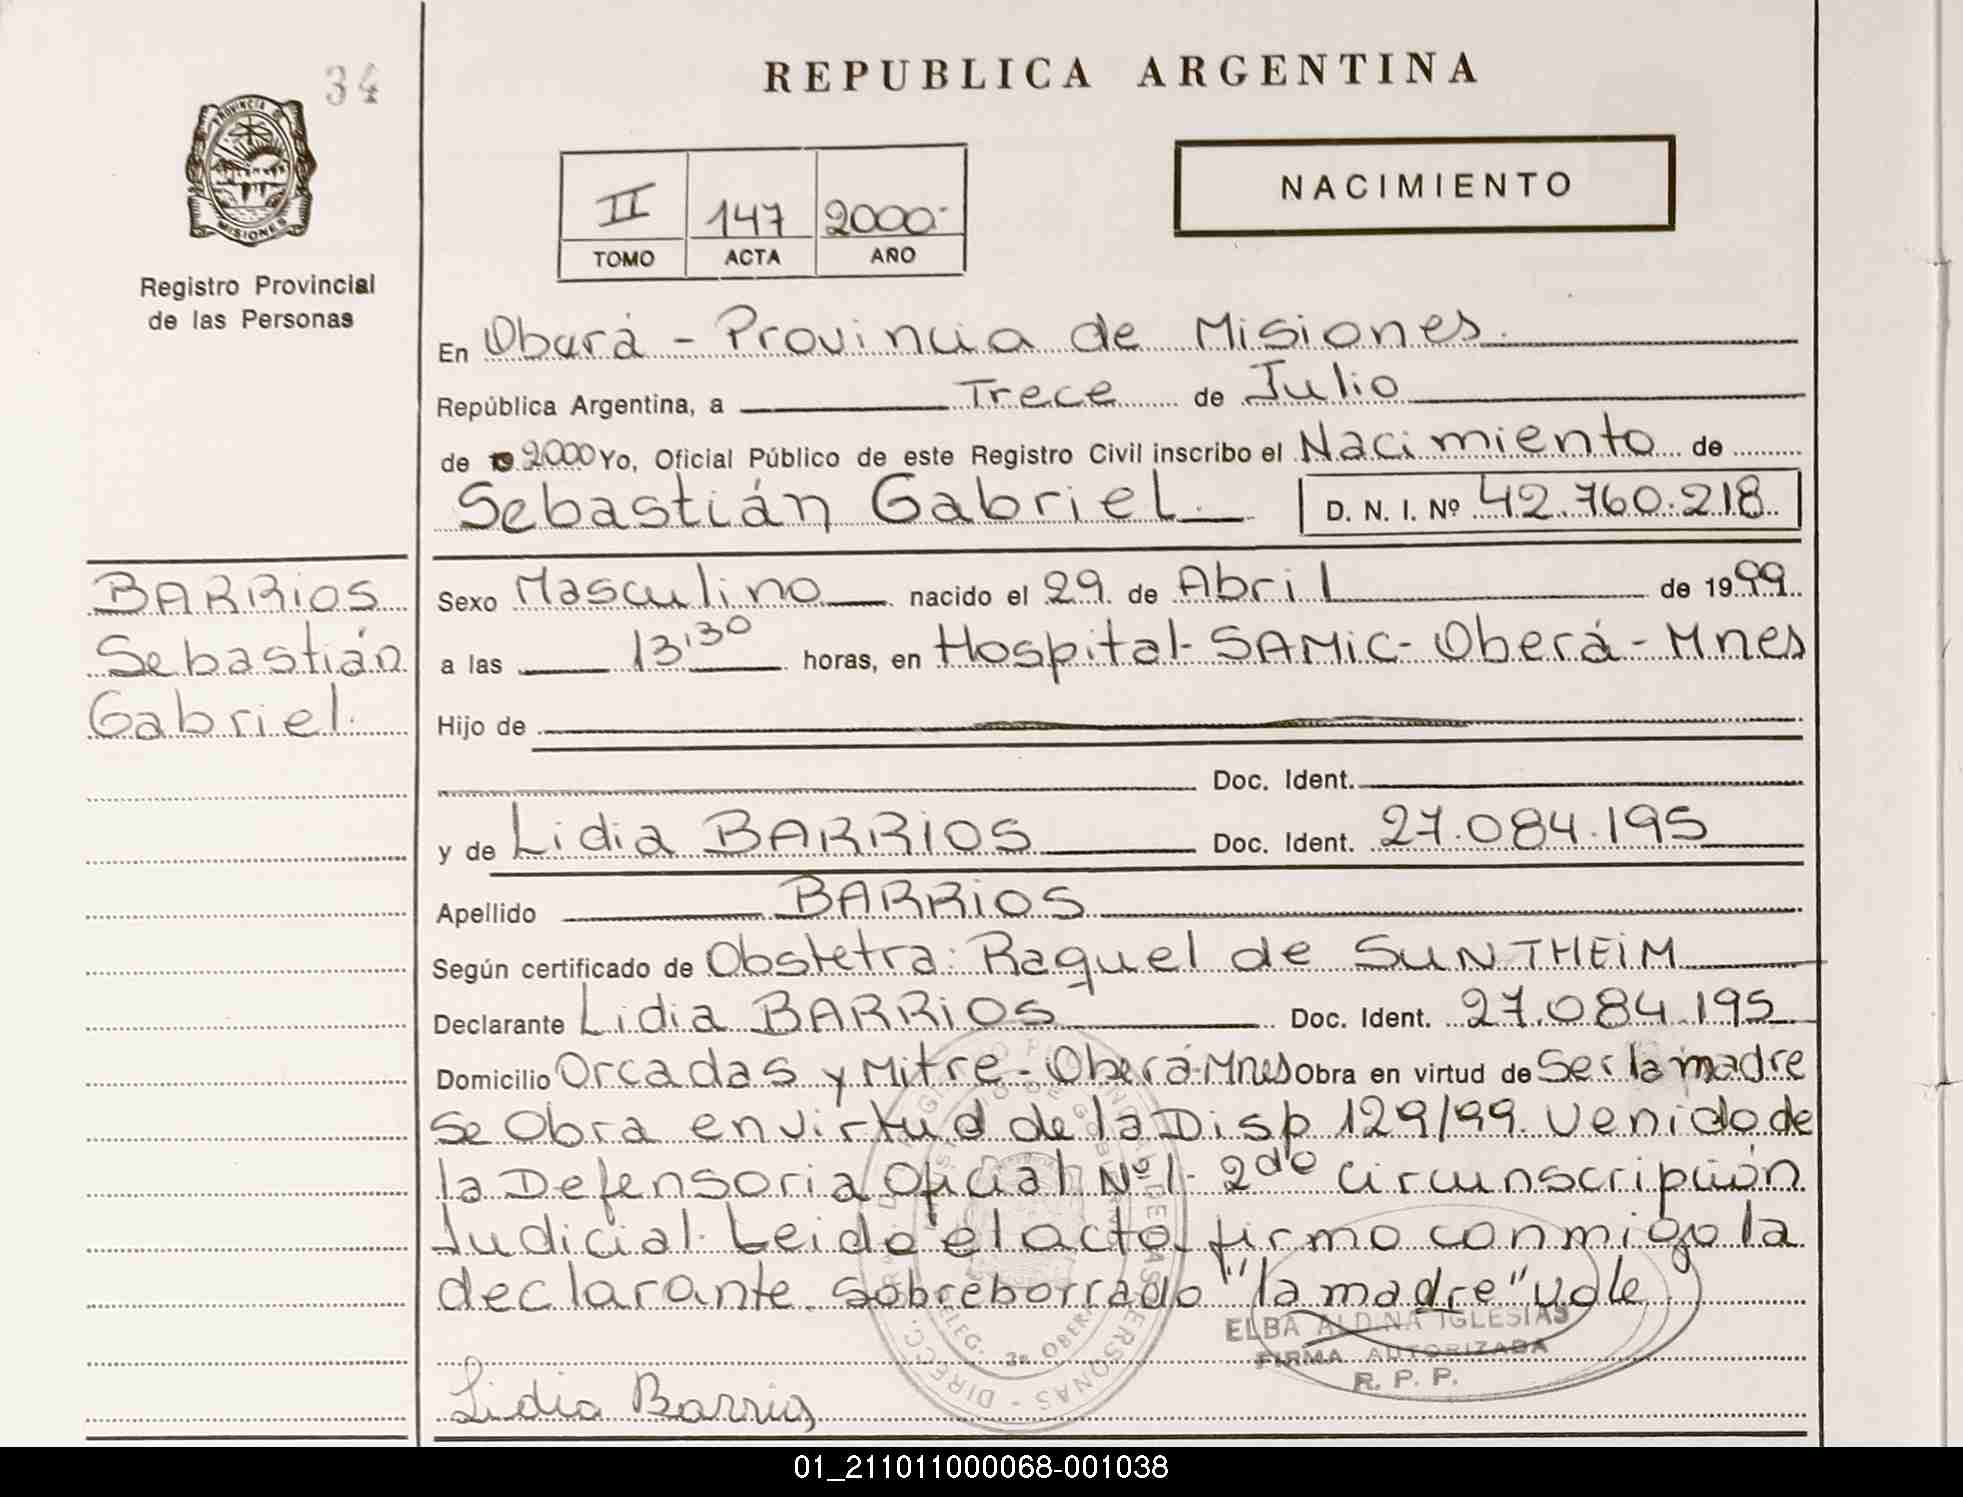 34
REPUBLICA ARGENTINA
PROVINCIA DE
MISIONES
Registro Provincial
de las Personas
NACIMIENTO
II 147 2000
TOMO ACTA AÑO
En Oberá - Provincia de Misiones.
República Argentina, a Trece de Julio
de 2000 Yo, Oficial Público de este Registro Civil inscribo el Nacimiento de
Sebastián Gabriel. D. N. I. Nº 42.760.218
BARRIOS
Sebastián
Gabriel.
Sexo Masculino nacido el 29 de Abril de 1999
a las 13,30 horas, en Hospital-SAMIC-Oberá-Mnes
Hijo de
Doc. Ident.
y de Lidia BARRIOS Doc. Ident. 27.084.195
Apellido BARRIOS
Según certificado de Obstetra: Raquel de SUNTHEIM
Declarante Lidia BARRIOS Doc. Ident. 27.084.195
Domicilio Orcadas y Mitre - Oberá-Mnes Obra en virtud de Ser la madre
Se Obra en virtud de la Disp 129/99. Venido de
la Defensoria Oficial Nº1- 2do Circunscripción
Judicial. Leido el acto firmo conmigo la
declarante. Sobreborrado "la madre" vale
ELBA ALDINA IGLESIAS
FIRMA AUTORIZADA
R. P. P.
Lidia Barrios
01_211011000068-001038